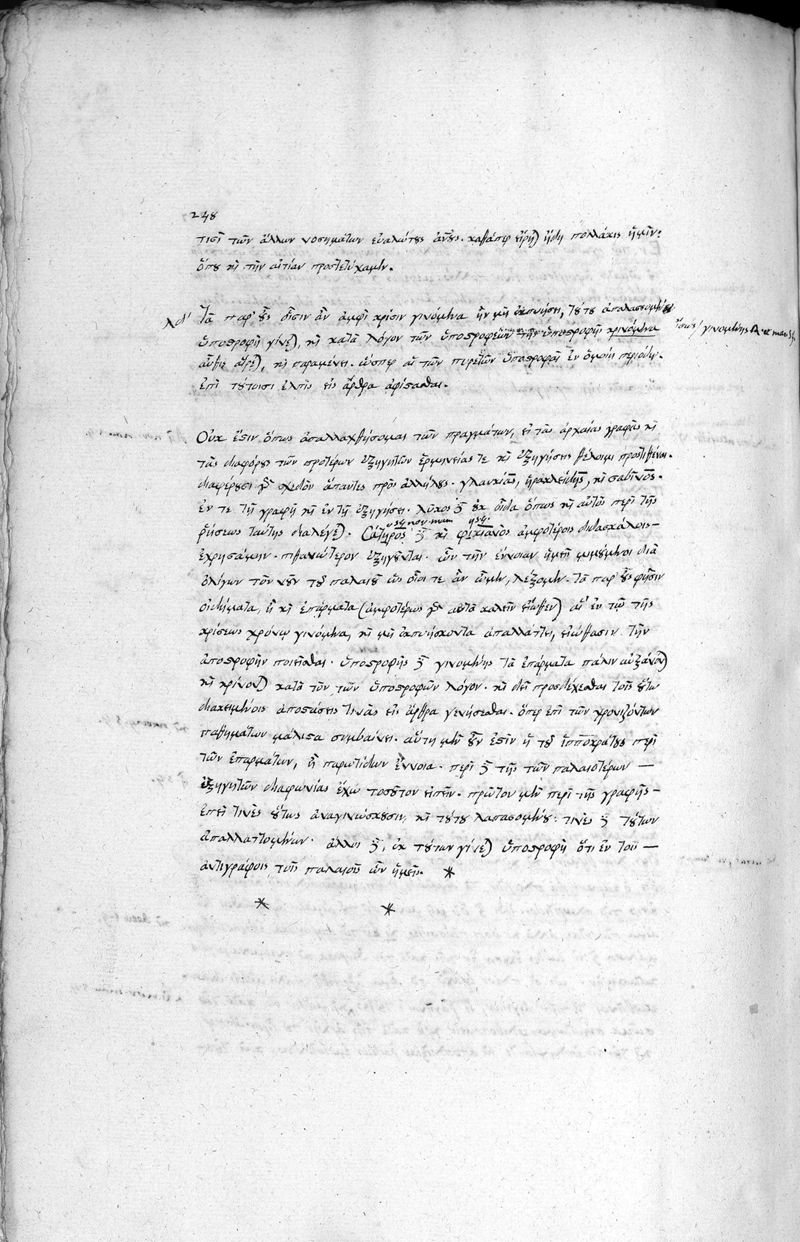 248
τισὶ τῶν ἄλλων νοσημάτων εὐαλώτους καθάπερ εἴρηται ἤδη πολλάκις ἡμῖν.
ὅπου καὶ τὴν αἰτίαν προστετύχαμεν.
λδ´ Τὰ παρ' οὖς οἷσιν ἂν ἀμφὶ κρίσιν γινόμενα ἢν μὴ ἐκπυήσῃ, τούτου ἀπαλασσομένου
ὑποστροφὴ γίνεται, καὶ κατὰ λόγον τῶν ὑποστροφέων τὴν ὑποστροφὴν κρινόμενα
ἴσως γινομένης
αὖθις αἴρεται, καὶ παραμένει. ὥσπερ αἱ τῶν πυρετῶν ὑποστροφαὶ ἐν ὁμοίῃ περιόδῳ.
ἐπὶ τούτοισι ἐλπὶς εἰς ἄρθρα ἀφίστασθαι.
Οὐκ ἔστιν ὅπως ἀπαλλαχθήσομαι τῶν πραγμάτων, εἰ τὰς ἀρχαίας γραφὰς καὶ
τὰς διαφόρους τῶν προτέρων ἐξηγητῶν ἑρμηνείας τε καὶ ἐξηγήσεις θέλοιμι προστιθέναι.
διαφέρουσι γὰρ σχεδὸν ἅπαντες πρὸς ἀλλήλους. γλαυκίας, ἡρακλείδης, καὶ σαβῖνος.
ἔν τε τῇ γραφῇ καὶ ἐν τῇ ἐξηγήσει. λύκος δὲ οὐκ οἶδα ὅπως καὶ αὐτὸς περὶ τῆς
ῥήσεως ταύτης διαλέγεται. Σάτυρος δὲ καὶ φικιανὸς ἀμφοτέροις διδασκάλοις
ἐχρησάμην. πιθανώτερον ἐξηγοῦνται. ὧν τὴν ἔννοιαν ἡμεῖς μιμούμενοι διὰ
ὀλίγων τὸν νοῦν τοῦ παλαιοῦ ὡς οἷοί τε ἂν ὦμεν, λέξομεν. τὰ παρ' οὖς φησὶν
οἰδήματα, ἢ καὶ ἐπάρματα (ἀμφοτέρως γὰρ αὐτὰ καλεῖν εἴωθεν) αὖ ἐν τῷ τῆς
κρίσεως χρόνῳ γινόμενα, καὶ μὴ ἐκπυήσκοντα ἀπαλλάττει, εἰώθασιν τὴν
ἀποστροφὴν ποιεῖσθαι. ὑποστροφῆς δὲ γινομένης τὰ ἐπάρματα πάλιν αὐξάνονται
καὶ κρίνονται κατὰ τὸν τῶν ὑποστροφῶν λόγον. καὶ δεῖ προσδέχεσθαι τοῖς οὕτω
διακειμένοις ἀποστάσεις τινὰς εἰς ἄρθρα γενήσεσθαι. ὅπερ ἐπὶ τῶν χρονιζόντων
παθημάτων μάλιστα συμβαίνει. αὕτη μὲν οὖν ἐστὶν ἡ τοῦ ἱπποκράτους περὶ
τῶν ἐπαρμάτων, ἢ παρωτίδων ἔννοια. περὶ δὲ τῆς τῶν παλαιοτέρων
ἐξηγητῶν διαφωνίας ἔχω τοσοῦτον εἰπεῖν. πρῶτον μὲν περὶ τῆς γραφῆς
ἐπεὶ τινὲς οὕτως ἀναγινώσκουσιν, καὶ τούτου λαπασσομένου. τινὲς δὲ τούτων
ἀπαλλαττομένων. ἄλλοι δὲ, ἐκ τούτων γίνεται ὑποστροφὴ ὅτι ἐν τοῖς
ἀντιγράφοις τοῖς παλαιοῖς ὧν ἡμεῖς. *
* *